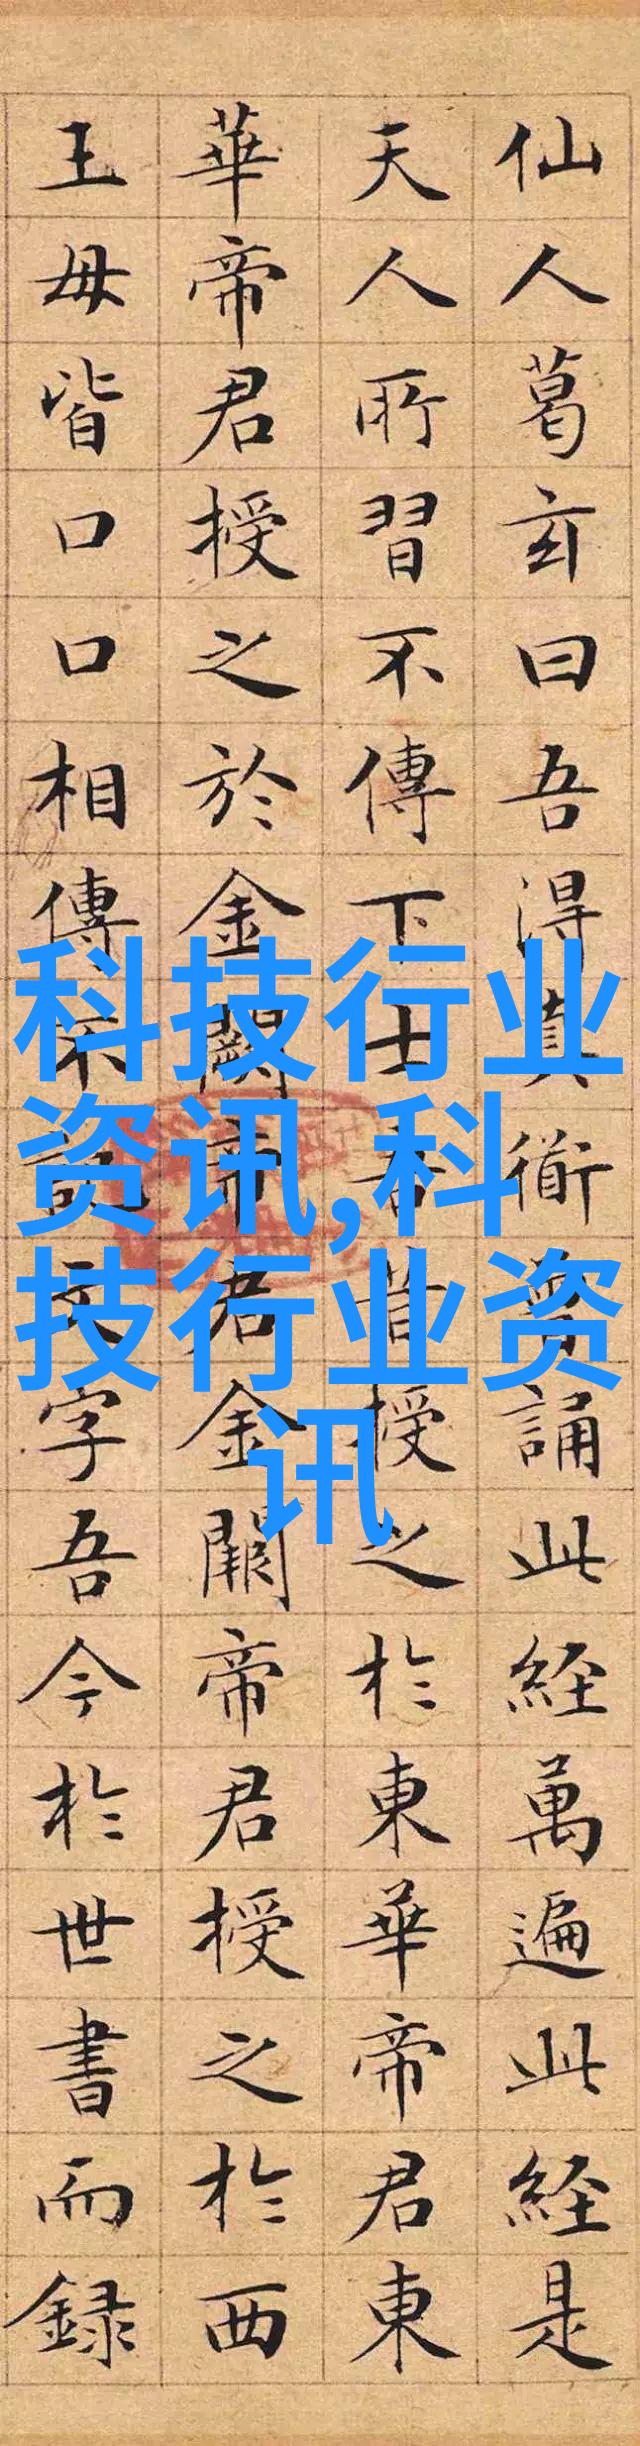 仙人葛玄曰吾淂真衜曾誦此経萬遍此経是
天人所習不傳下士吾昔授之於東華帝君東
華帝君授之於金闕帝君金闕帝君授之於西
王母皆口口相傳不記文字吾今於世書而録
科技行业
资讯,科
技行业资
讯